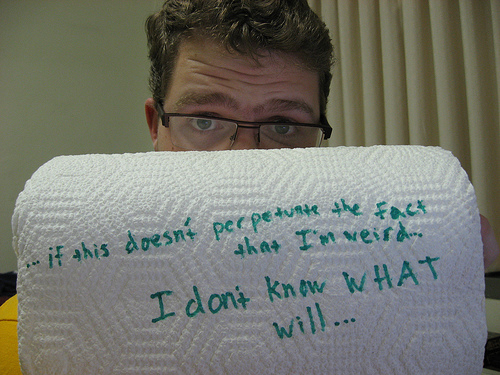 ... if this doesn't perpetuate the fact
that I'm weird...
I don't know WHAT
will...